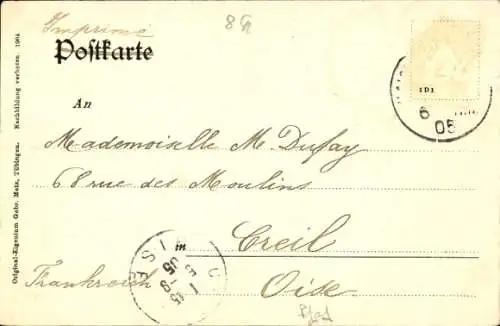 Imprimé
Postkarte
An
Mademoiselle M. Dufay
68 rue des Moulins
in Creil
Frankreich Oise
6
05
OISE
Original-Eigentum Gebr. Metz, Tübingen. Nachbildung verboten 1904